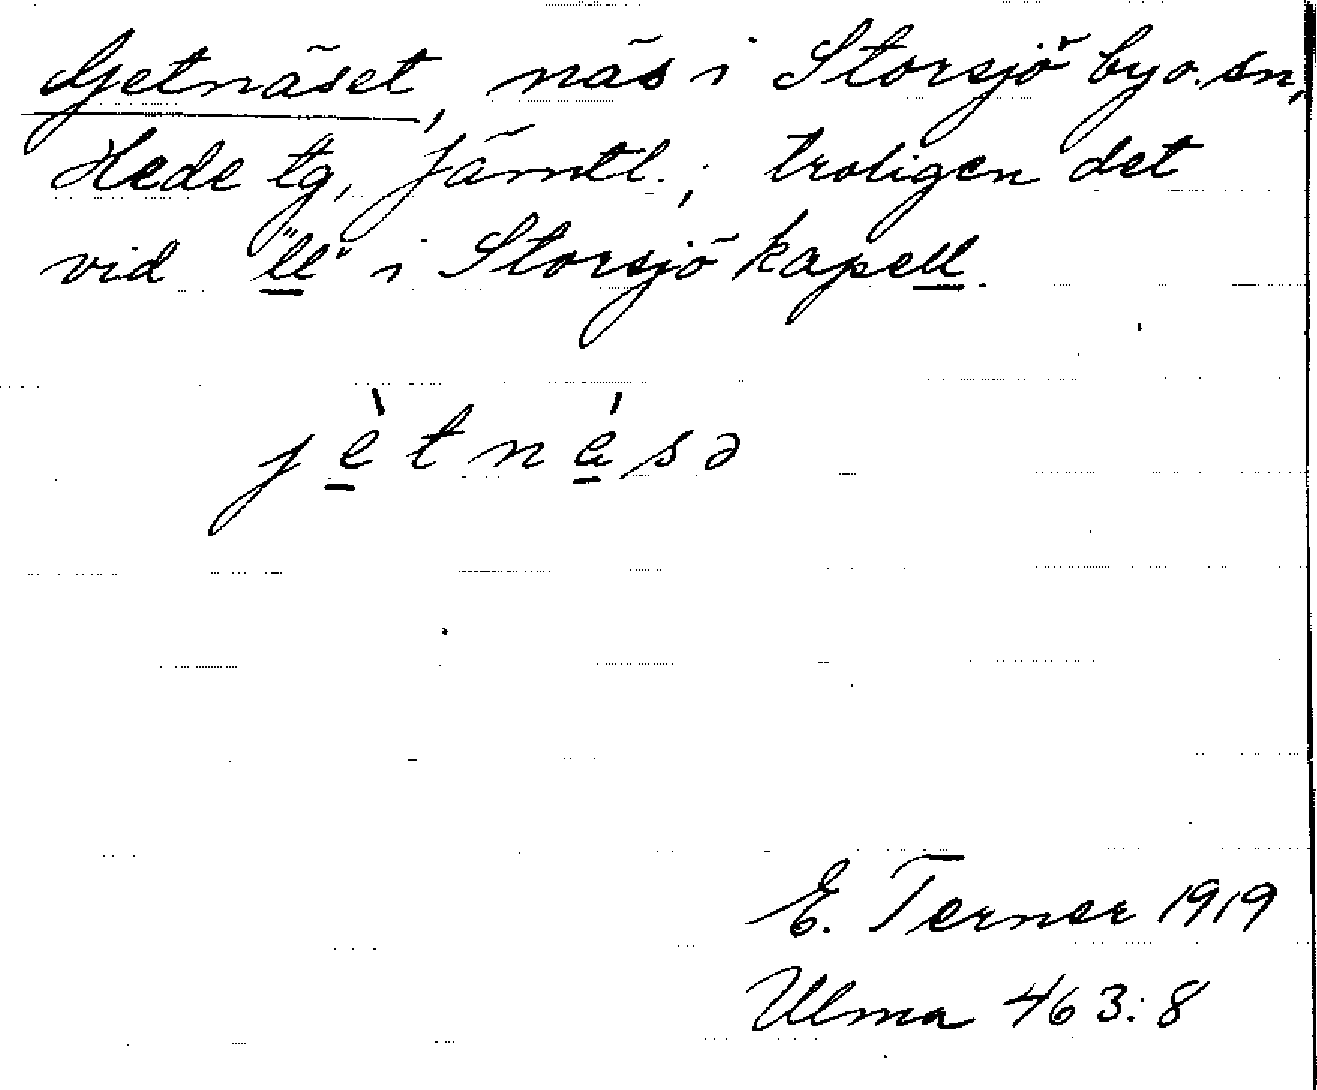 Getnäset, näs i Storsjö by o. sn,
Hede tg, Jämtl.; troligen det
vid "ll" i Storsjö kapell.
jètnésə
E. Terner 1919
Ulma 463:8